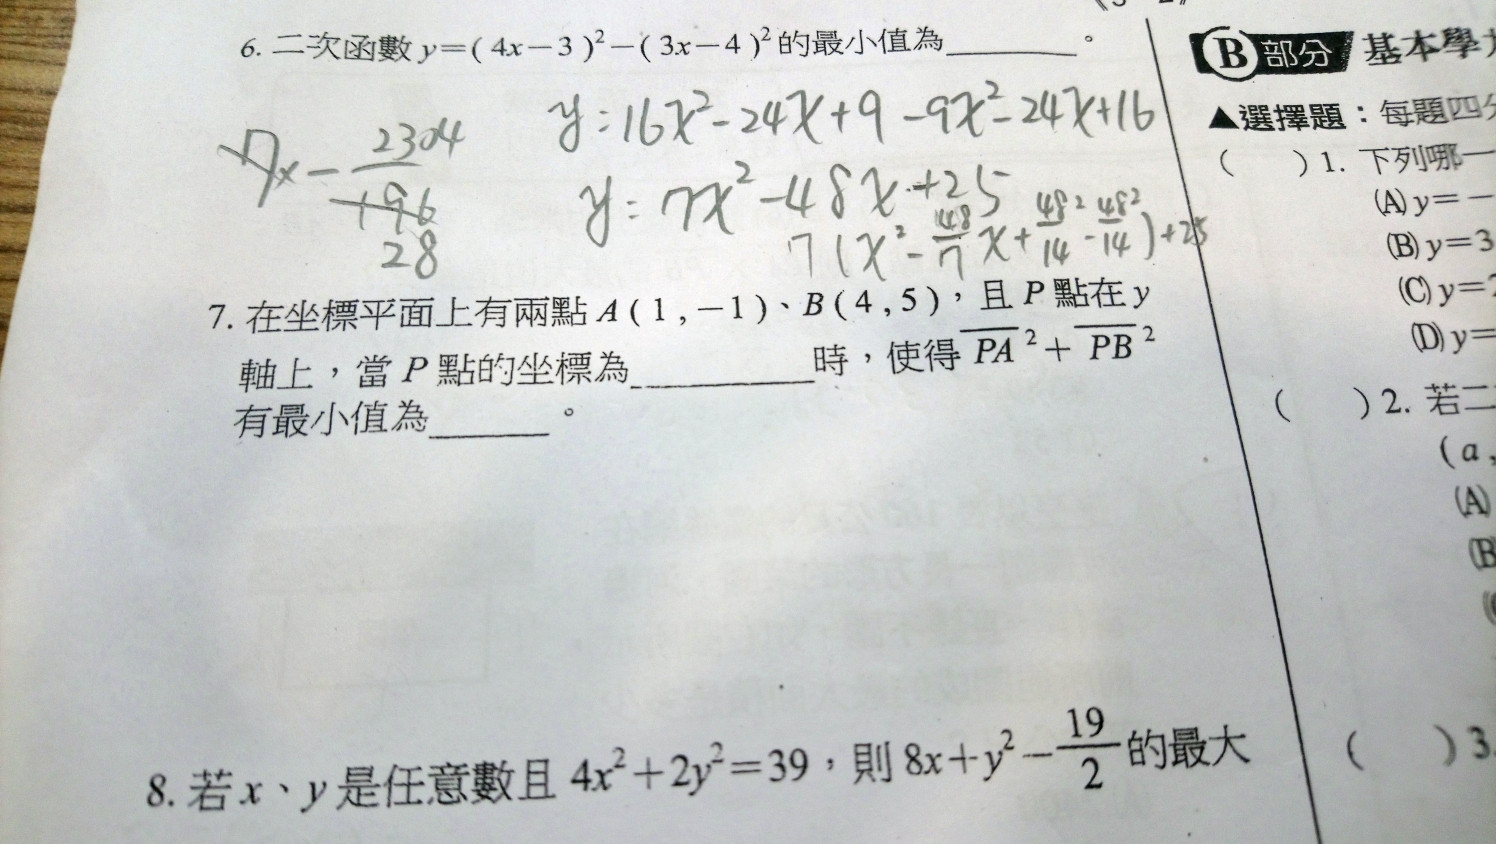 6. 二次函數 y=(4x-3)²-(3x-4)² 的最小值為______。
y=16x²-24x+9-9x²-24x+16
7x-2304/196
28
y=7x²-48x+25
7(x²-48/7x+48²/14-48²/14)+25
7. 在坐標平面上有兩點 A(1,-1)、B(4,5),且 P 點在 y
軸上,當 P 點的坐標為________時,使得 PA²+PB²
有最小值為_____。
8. 若 x、y 是任意數且 4x²+2y²=39,則 8x+y²-19/2 的最大
B 部分 基本學
▲選擇題:每題四
( ) 1. 下列哪一
(A) y=-
(B) y=3
(C) y=
(D) y=
( ) 2. 若二
(a,
(A)
(B
( ) 3.